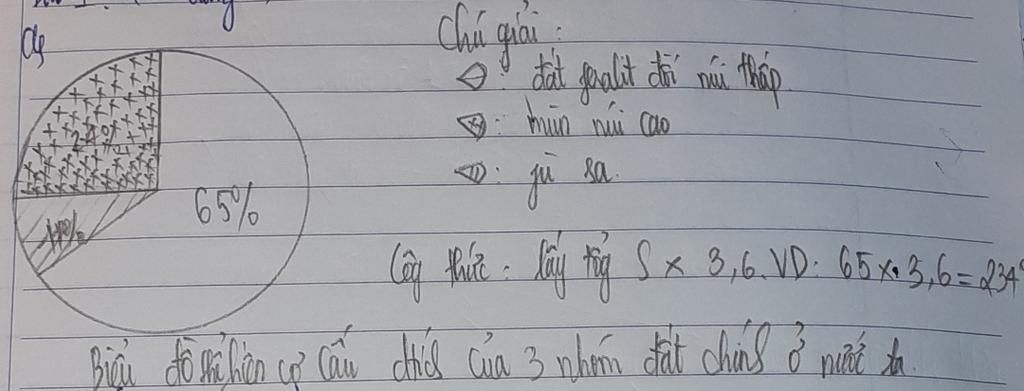 a,
Chú giải:
: đất feralit đồi núi thấp
: mùn núi cao
: phù sa.
24%
65%
11%
Công thức: lấy tổng S x 3,6. VD: 65 x 3,6 = 234°
Biểu đồ thể hiện cơ cấu của 3 nhóm đất chính ở nước ta